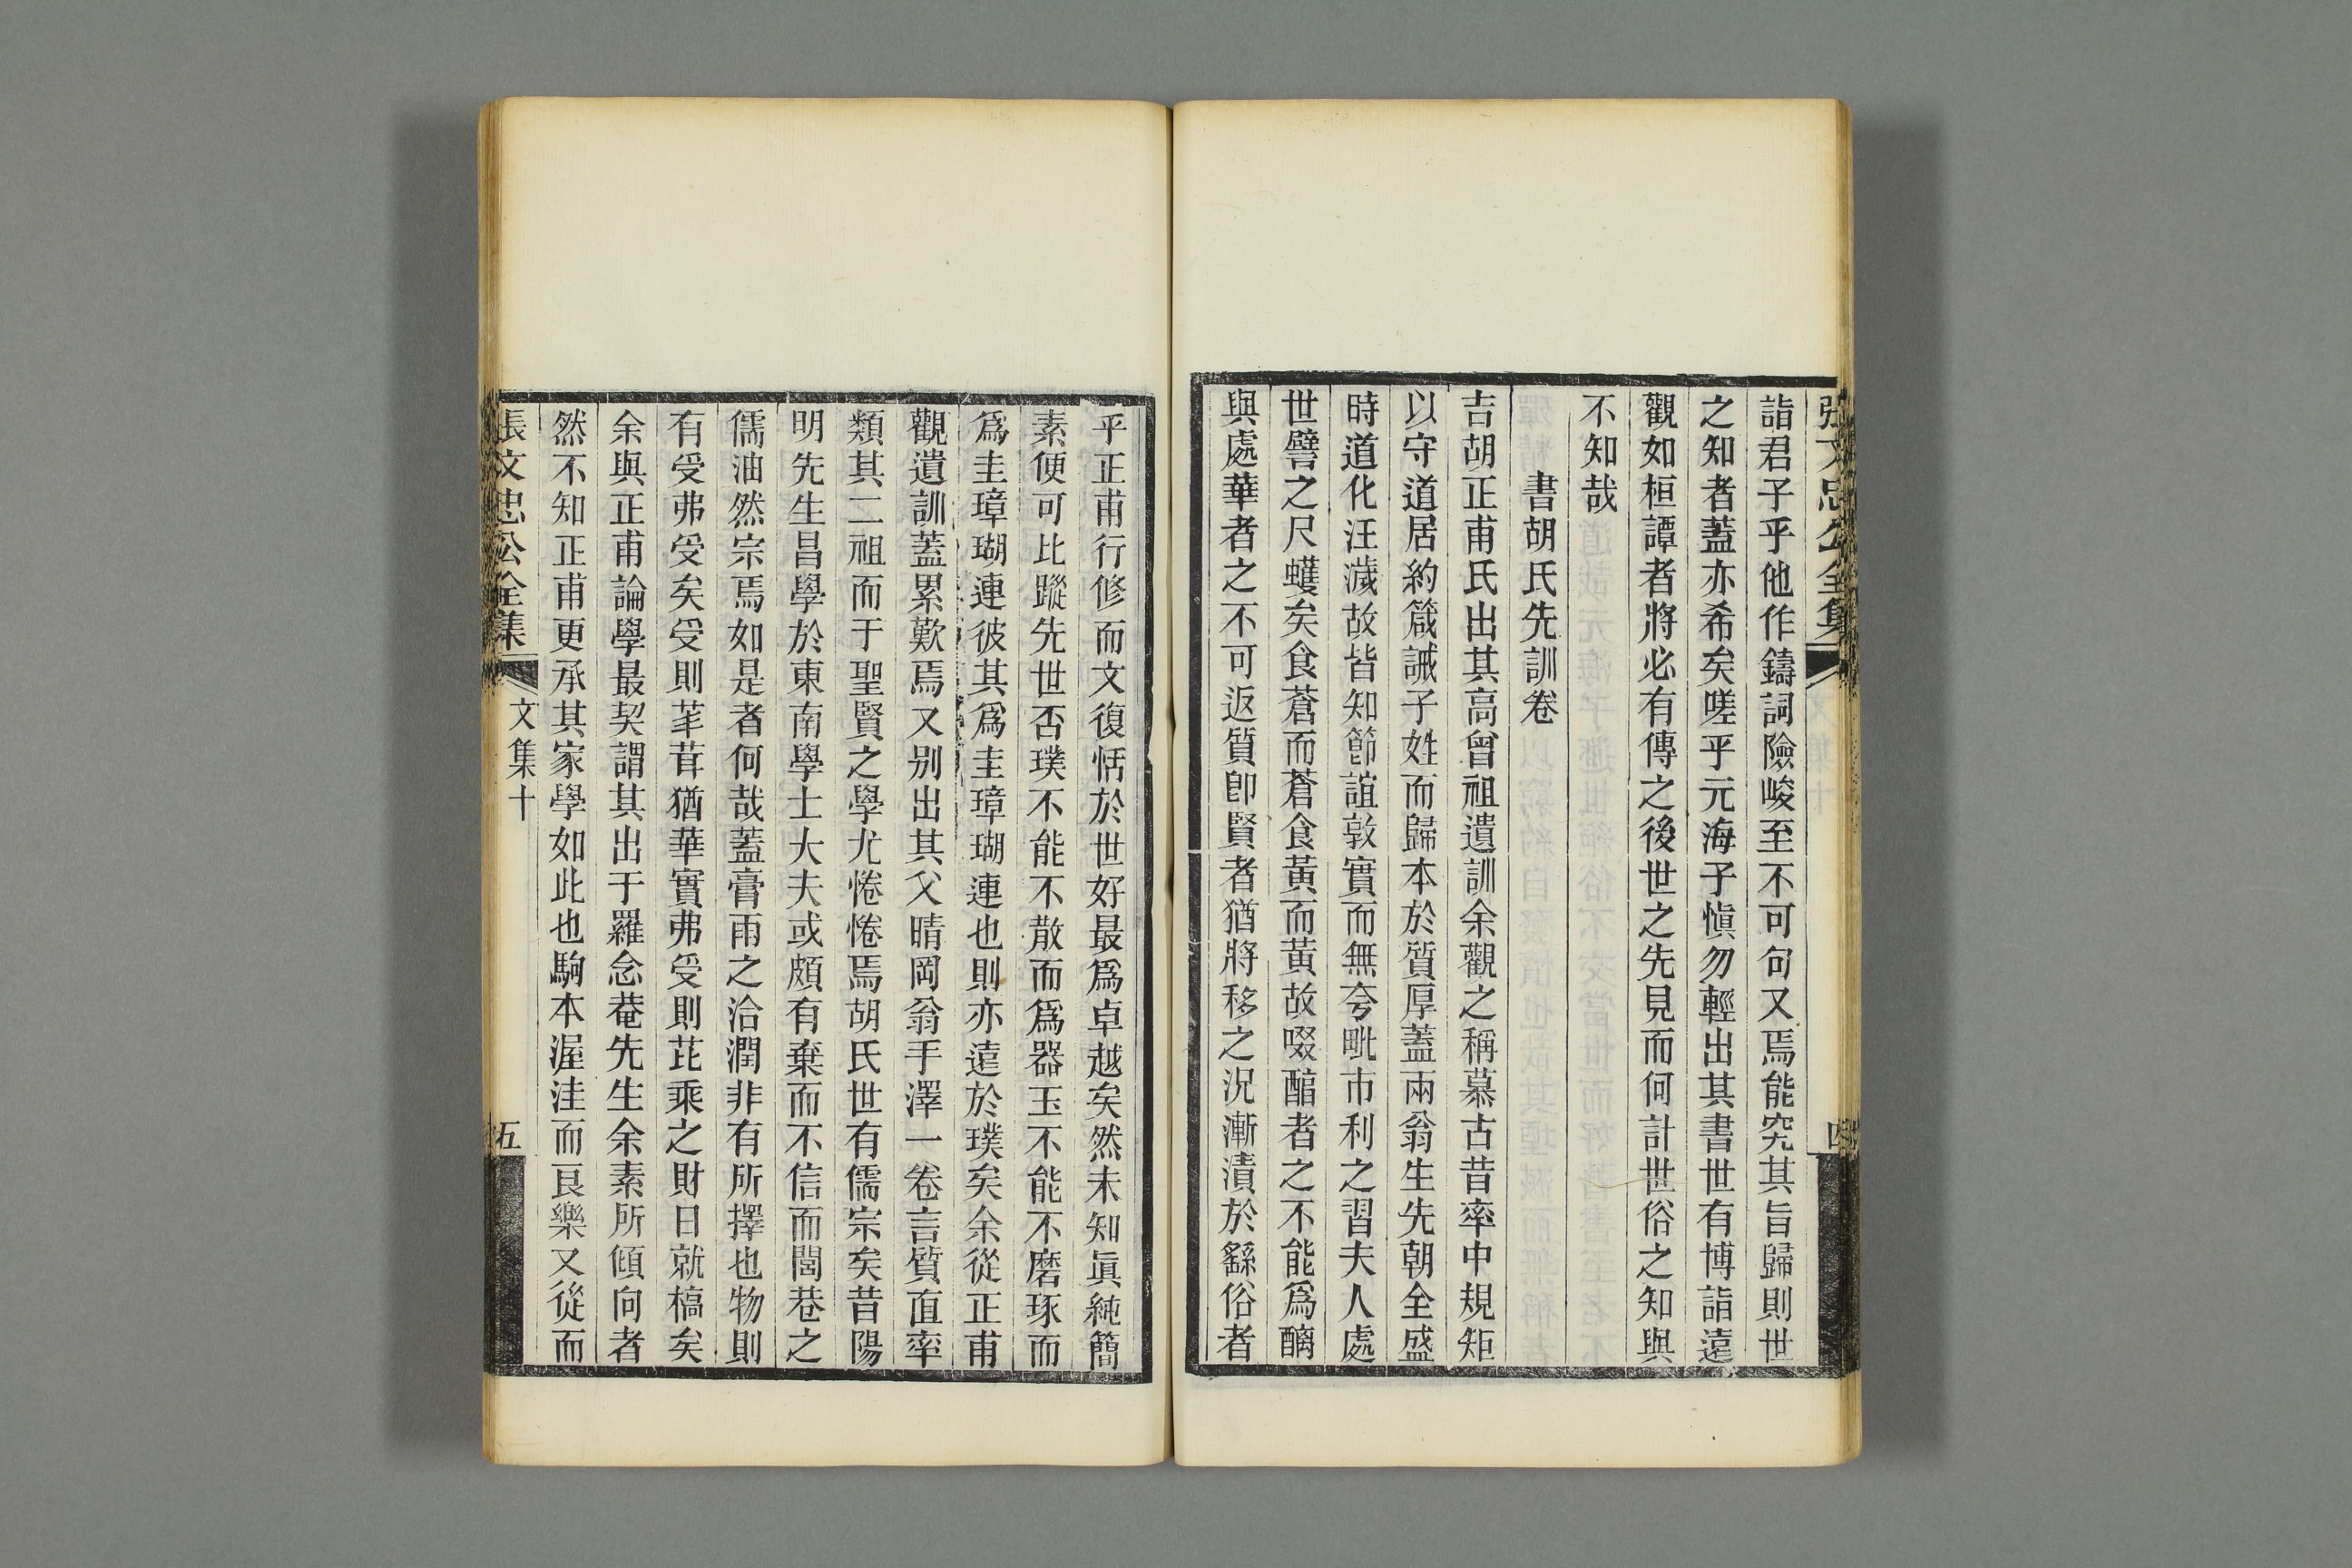 張文忠公全集
四
詣君子乎他作鑄詞險峻至不可句又焉能究其旨歸則世
之知者蓋亦希矣嗟乎元海子愼勿輕出其書世有博詣遠
觀如桓譚者將必有傳之後世之先見而何計世俗之知與
不知哉
書胡氏先訓卷
吉胡正甫氏出其高曾祖遺訓余觀之稱慕古昔率中規矩
以守道居約箴誡子姓而歸本於質厚蓋兩翁生先朝全盛
時道化汪濊故皆知節誼敦實而無夸毗市利之習夫人處
世譬之尺蠖矣食蒼而蒼食黃而黃故啜醨者之不能爲醨
與處華者之不可返質卽賢者猶將移之況漸漬於繇俗者
乎正甫行修而文復恬於世好最爲卓越矣然未知眞純簡
素便可比蹤先世否璞不能不散而爲器玉不能不磨琢而
爲圭璋瑚連彼其爲圭璋瑚連也則亦遠於璞矣余從正甫
觀遺訓蓋累歎焉又别出其父晴岡翁手澤一卷言質直率
類其二祖而于聖賢之學尤惓惓焉胡氏世有儒宗矣昔陽
明先生昌學於東南學士大夫或頗有棄而不信而閭巷之
儒油然宗焉如是者何哉蓋膏雨之洽潤非有所擇也物則
有受弗受矣受則芼茸猶華實弗受則芘乘之財日就槁矣
余與正甫論學最契謂其出于羅念菴先生余素所傾向者
然不知正甫更承其家學如此也駒本渥洼而良樂又從而
張文忠公全集
文集十
五